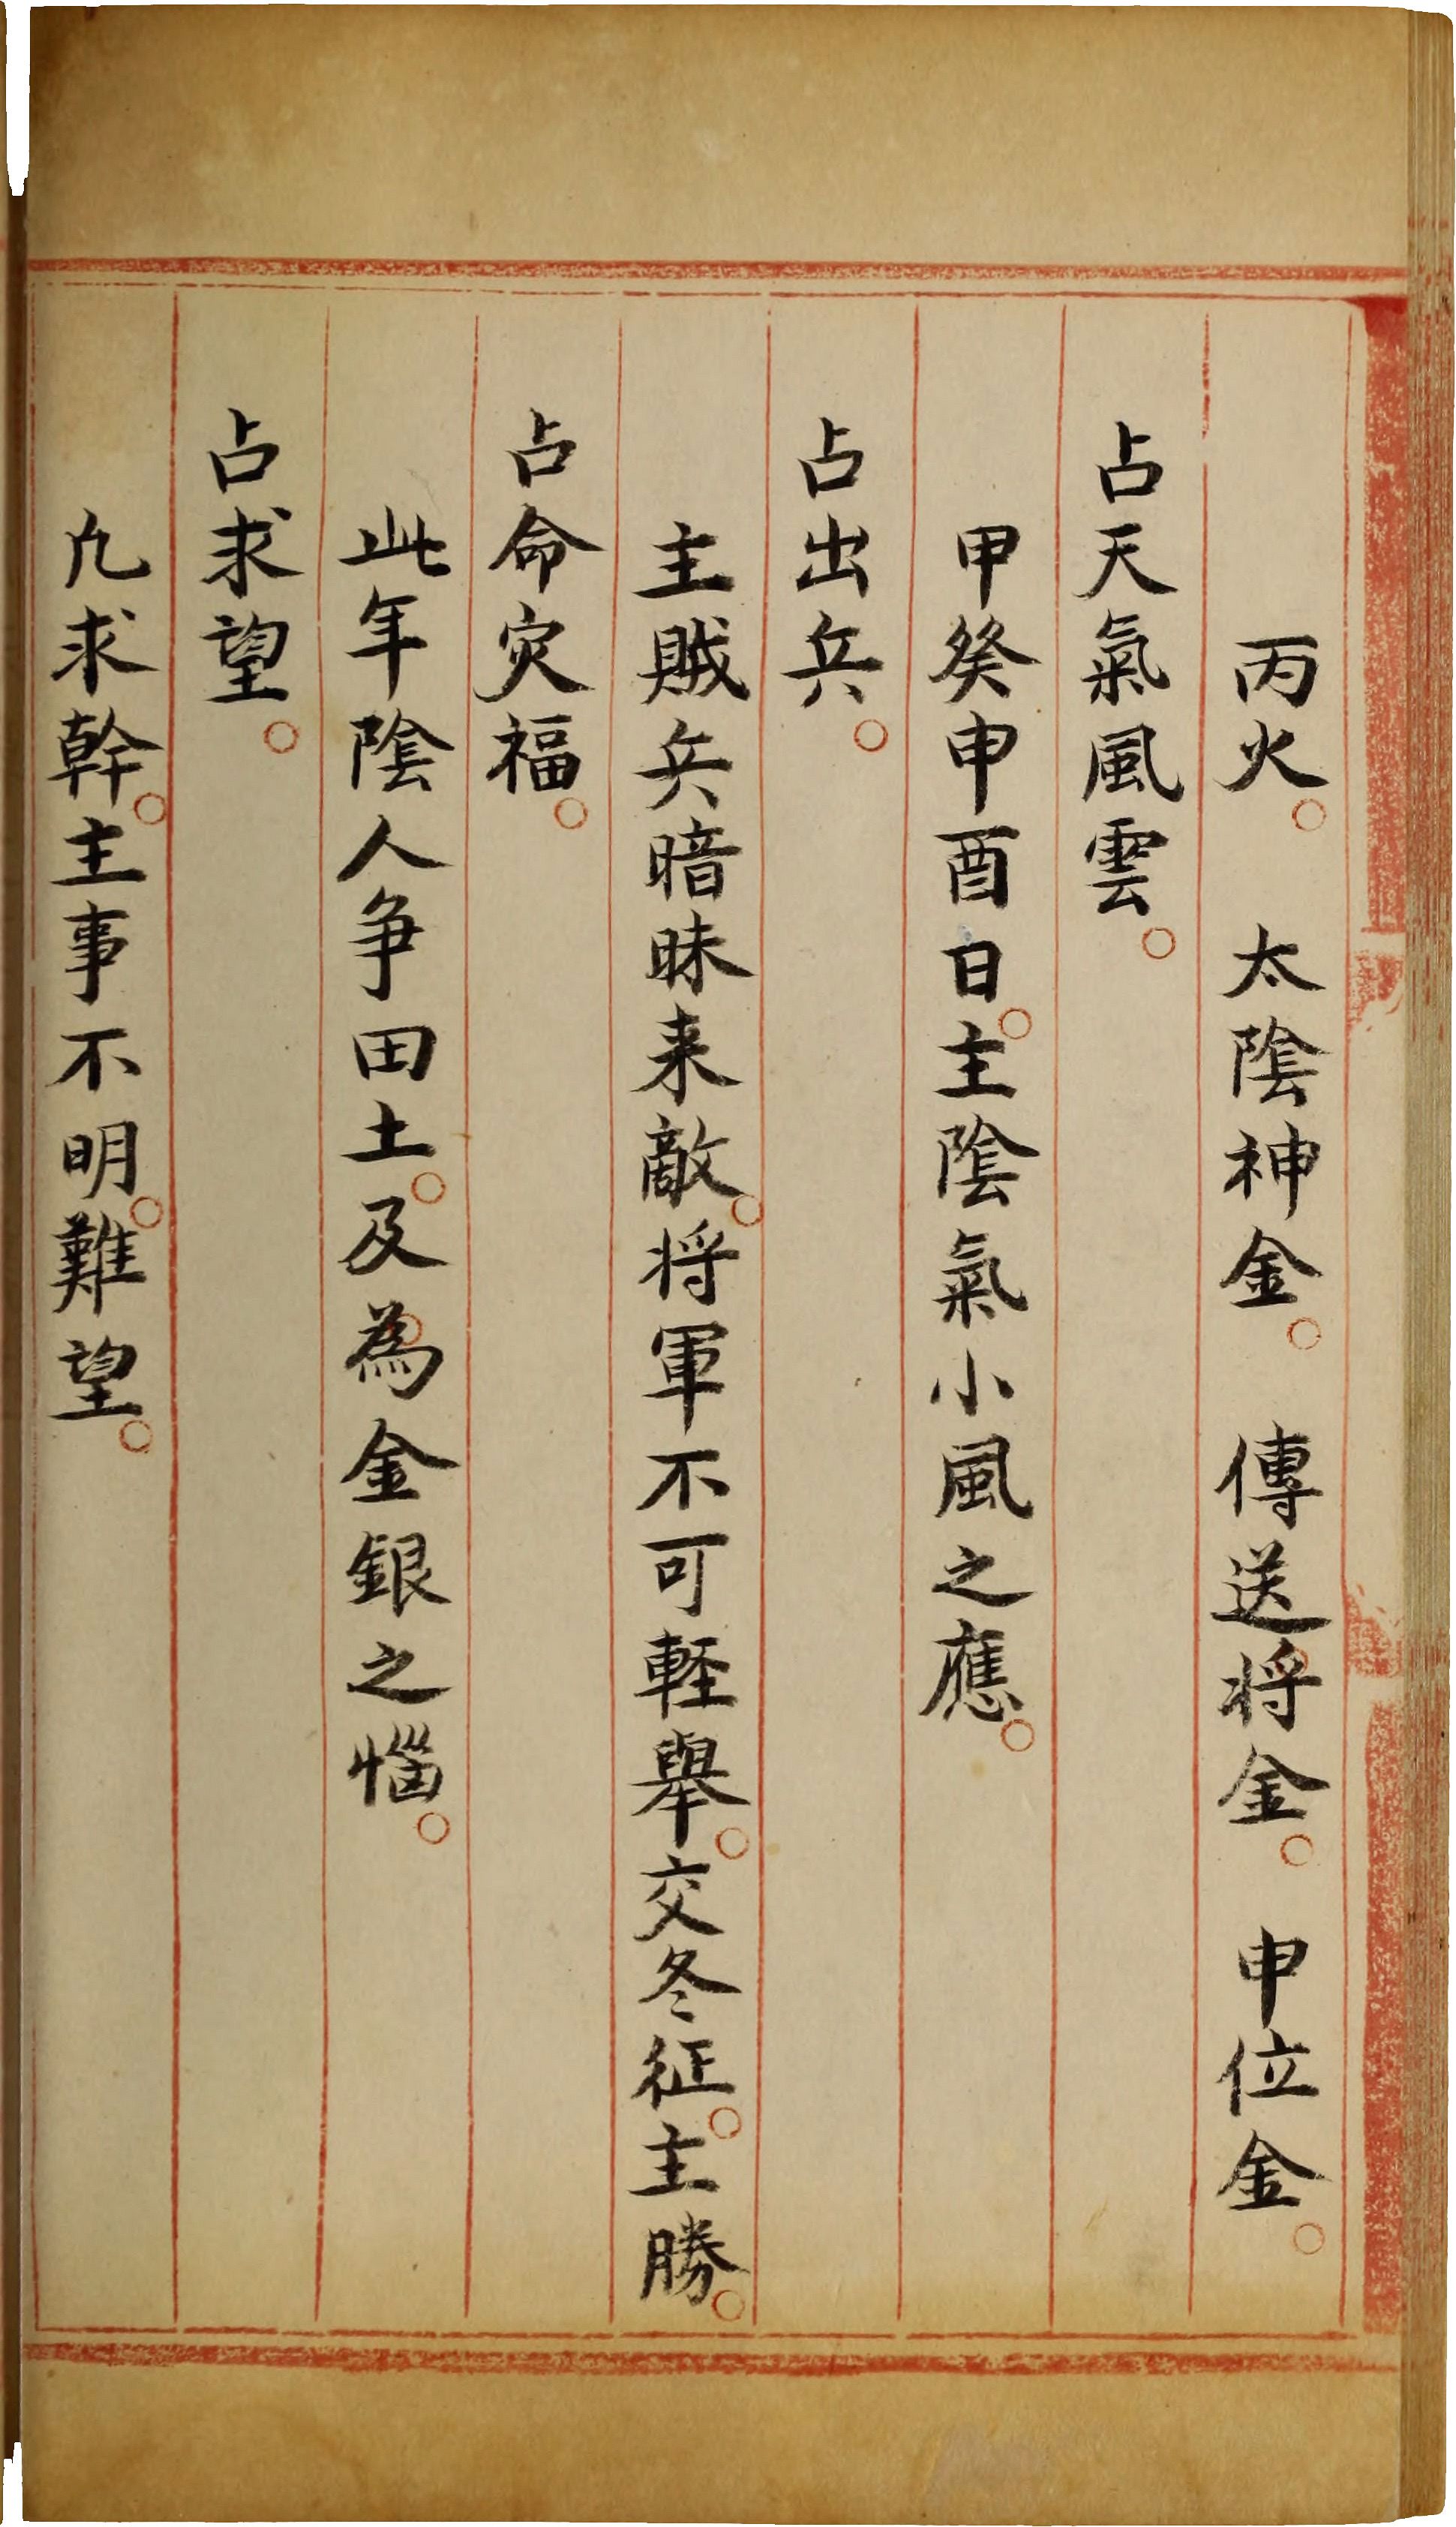 丙火。　太陰神金。　傳送将金。　申位金。
占天氣風雲。
甲癸申酉日。主陰氣小風之應。
占出兵。
主賊兵暗昧来敵。将軍不可軽舉。交冬征。主勝。
占命灾福。
此年陰人争田土。及為金銀之惱。
占求望。
凢求幹。主事不明。難望。